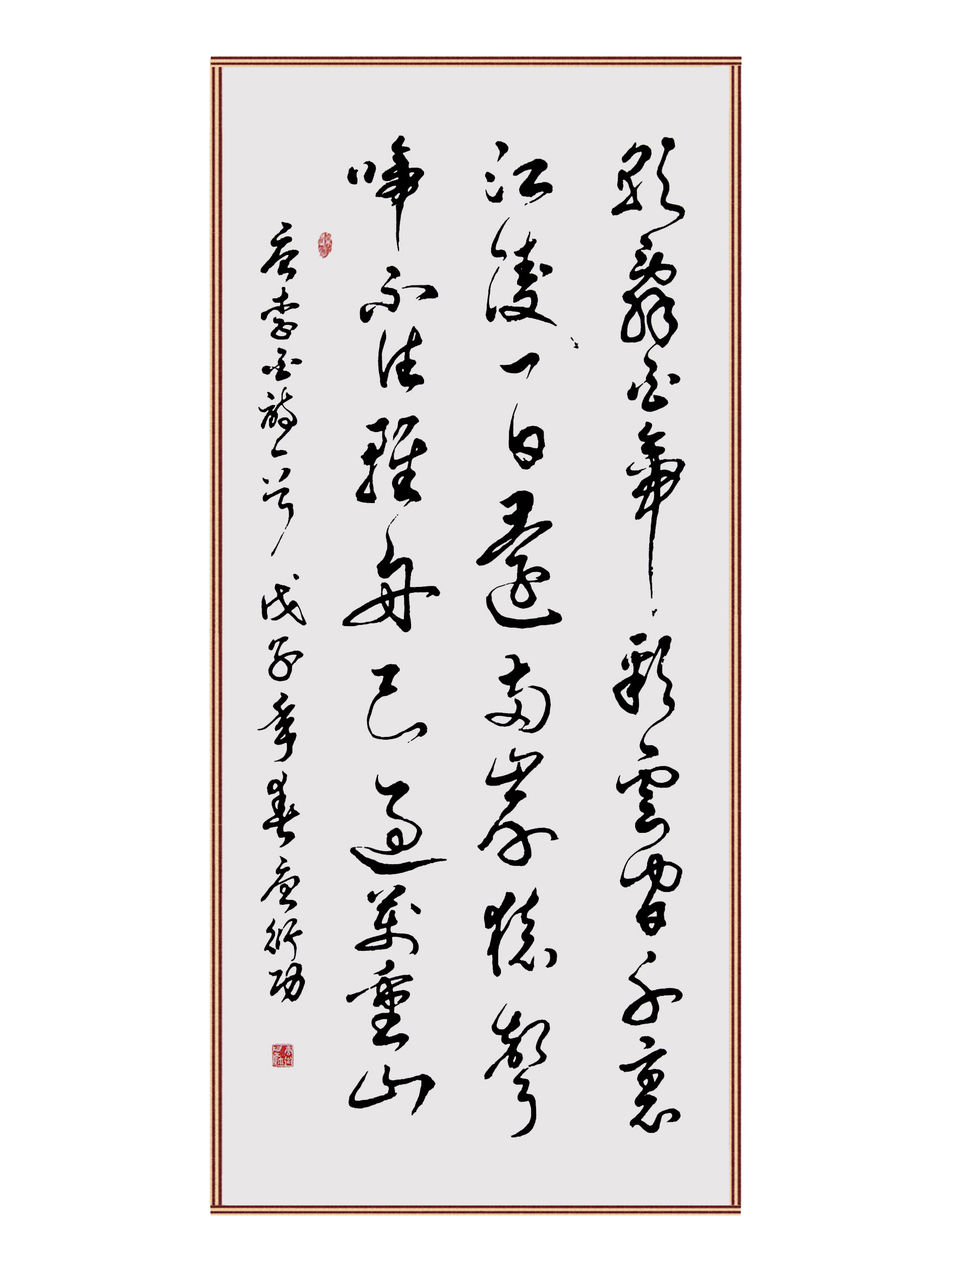 朝辭白帝彩雲間千裏
江陵一日還兩岸猿聲
啼不住輕舟已過萬重山
唐李白詩一首 戊子年春